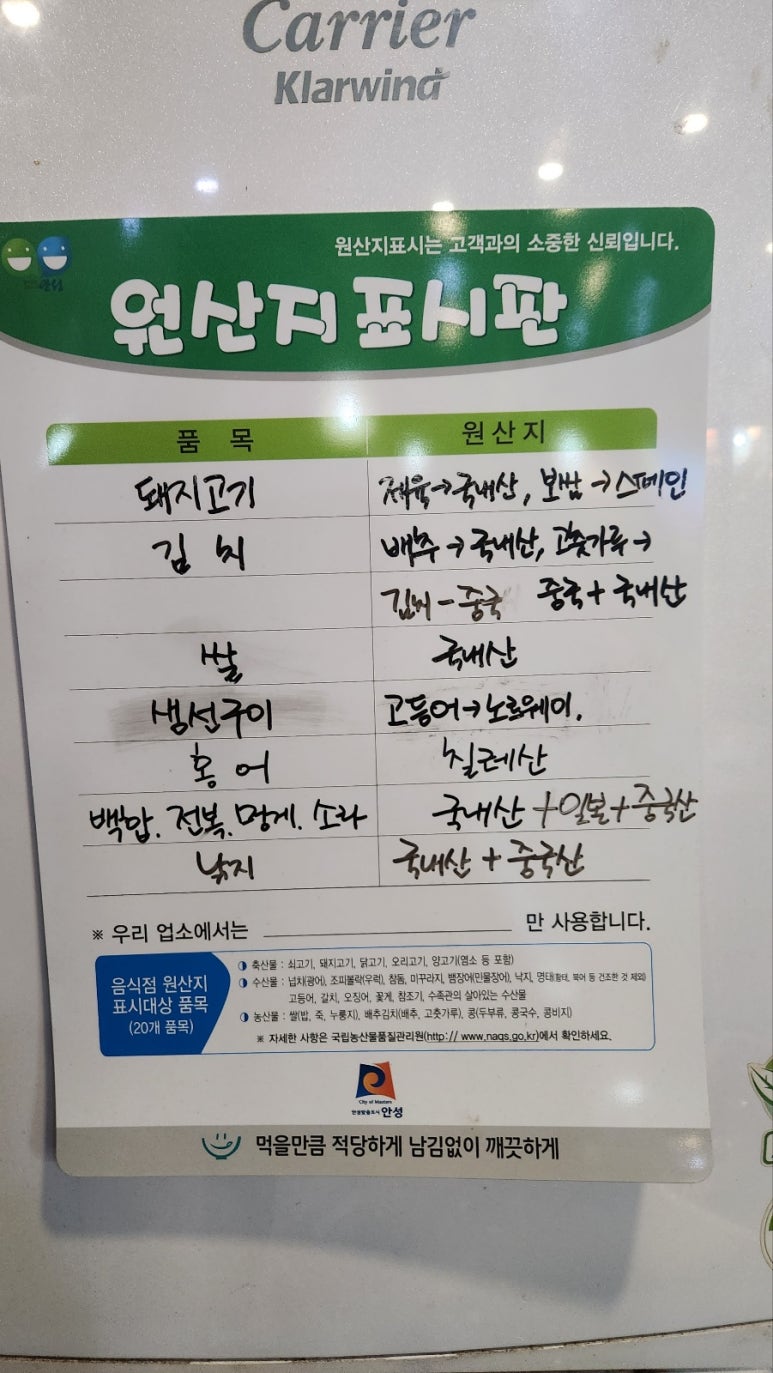 Carrier
Klarwind
원산지표시는 고객과의 소중한 신뢰입니다.
안성
원산지 표시판
품 목 원산지
돼지고기 제육→국내산, 보쌈→스페인
김 치 배추→국내산, 고춧가루→
김치-중국 중국+국내산
쌀 국내산
생선구이 고등어→노르웨이.
홍 어 칠레산
백합. 전복. 멍게. 소라 국내산+일본+중국산
낙지 국내산+중국산
※ 우리 업소에서는 만 사용합니다.
음식점 원산지
표시대상 품목
(20개 품목)
축산물 : 쇠고기, 돼지고기, 닭고기, 오리고기, 양고기(염소 등 포함)
수산물 : 넙치(광어), 조피볼락(우럭), 참돔, 미꾸라지, 뱀장어(민물장어), 낙지, 명태(황태, 북어 등 건조한 것 제외)
고등어, 갈치, 오징어, 꽃게, 참조기, 수족관의 살아있는 수산물
농산물 : 쌀(밥, 죽, 누룽지), 배추김치(배추, 고춧가루), 콩(두부류, 콩국수, 콩비지)
※ 자세한 사항은 국립농산물품질관리원(http:// www.naqs.go.kr)에서 확인하세요.
City of Masters
안성맞춤도시 안성
먹을만큼 적당하게 남김없이 깨끗하게